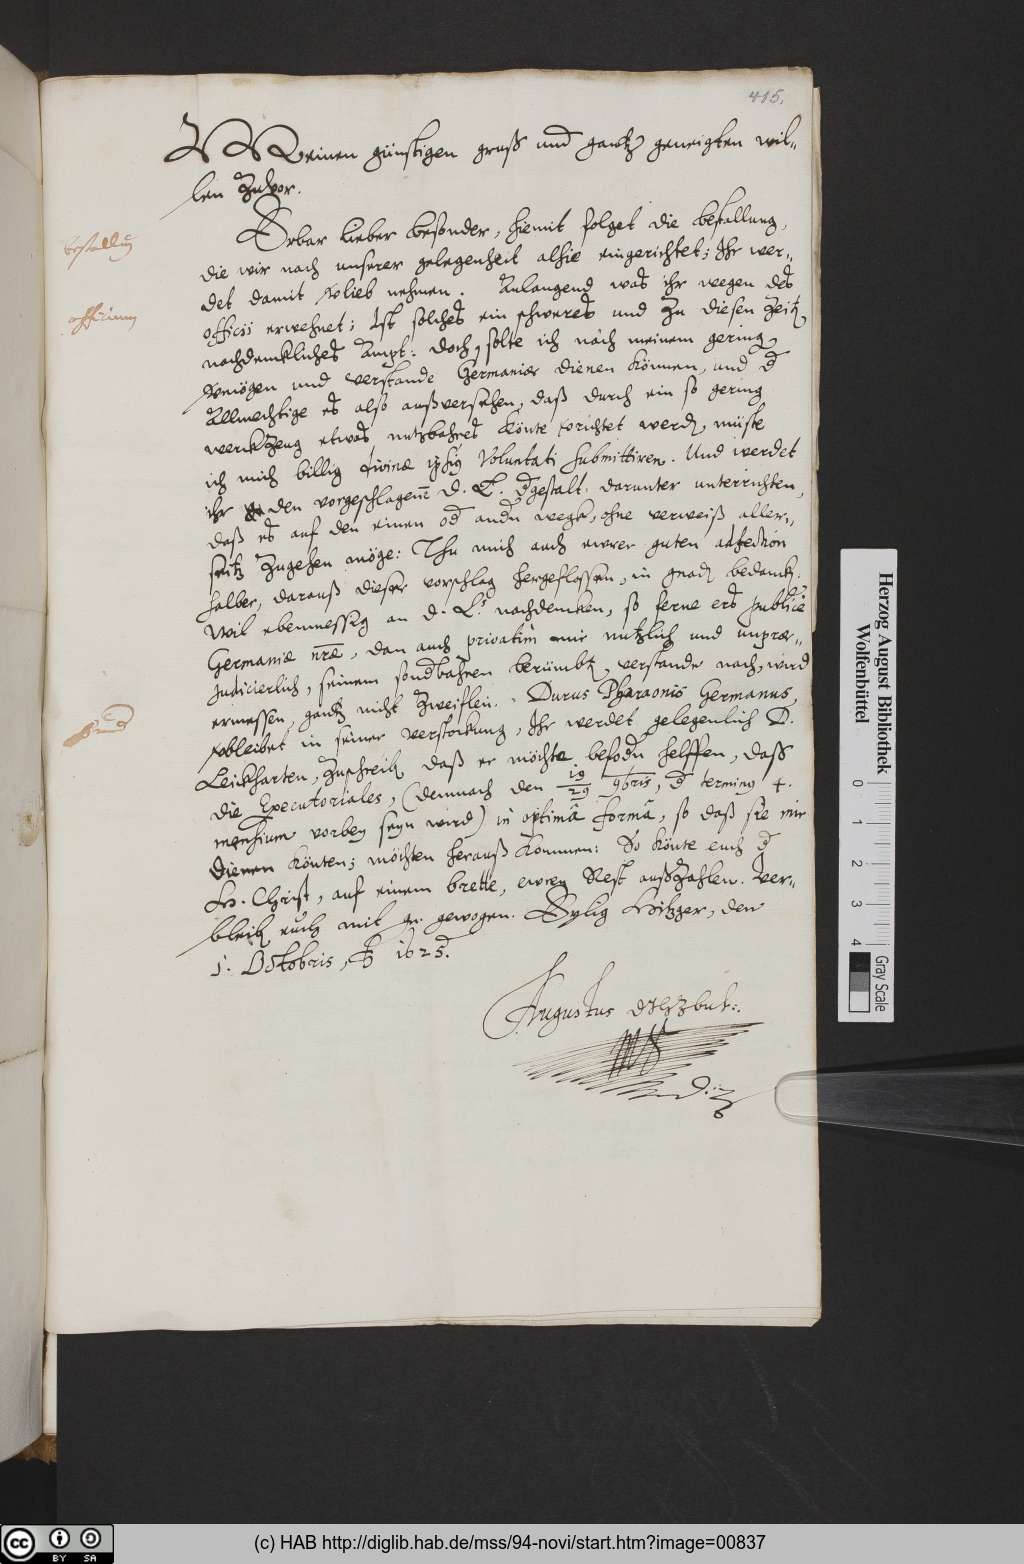 415.
Meinen günstigen gruß und gantz geneigten wil-
len zuvor.
Erbar lieber besonder, hiemit folget die bestallung,
bestallung
die wir nach unserer gelegenheit alhie eingerichtet; Ihr wer-
det damit vorlieb nehmen. Anlangend was ihr wegen des
officium
officii erwehnet; Ist solches ein schweres und zu diesen Zeitz
nachdenckliches Ampt: doch, solte ich nach meinem gering
vermögen und verstande Germaniæ dienen können, und d
Allmechtige es also außversehen, daß durch ein so gering
werckzeug etwas nutzbahres könte vorichtet werdz, müste
ich mich billig divinæ ipsiq Voluntati submittiren. Und werdet
ihr den vorgeschlagenen D. L. dgestalt darunter unterrichten,
daß es auf den einen od andn wege, ohne verweiß aller-
seitz zugehen möge: Thu mich auch ewrer guten affection
halber, darauß dieser vorschlag hergeflossen, in gnadz bedanckz.
Wil ebenmessig an D. L. nachdencken, so ferne ers publicè
Germaniæ nræ, dan auch privatim mir nutzlich und unpræ-
judicierlich, seinem sondbahren berümbtz verstande nach, wird
ermessen, gantz nicht zweiflen. Durus Pharaonis Germanus,
verbleibet in seiner verstockung, Ihr werdet gelegenlich D.
Leickharten, zuschreibz daß er möchte befodn helffen, daß
die Executoriales, (demnach den 19/29 9bris, d terming 4.
mensium vorbey seyn wird) in optimâ formâ, so daß sie mir
dienen könten; möchten herauß kommen: So könte euch d
H. Christ, auf einem brette, ewren Rest außzahlen. Ver-
bleibz euch mit gn. gewogen. Eylig Hitzger, den
1. Octobris, Ao 1625.
Augustus dHzBuL:.
Herzog August Bibliothek
Wolfenbüttel
0 1 2 3 4
Gray Scale
cc BY SA
(c) HAB http://diglib.hab.de/mss/94-novi/start.htm?image=00837